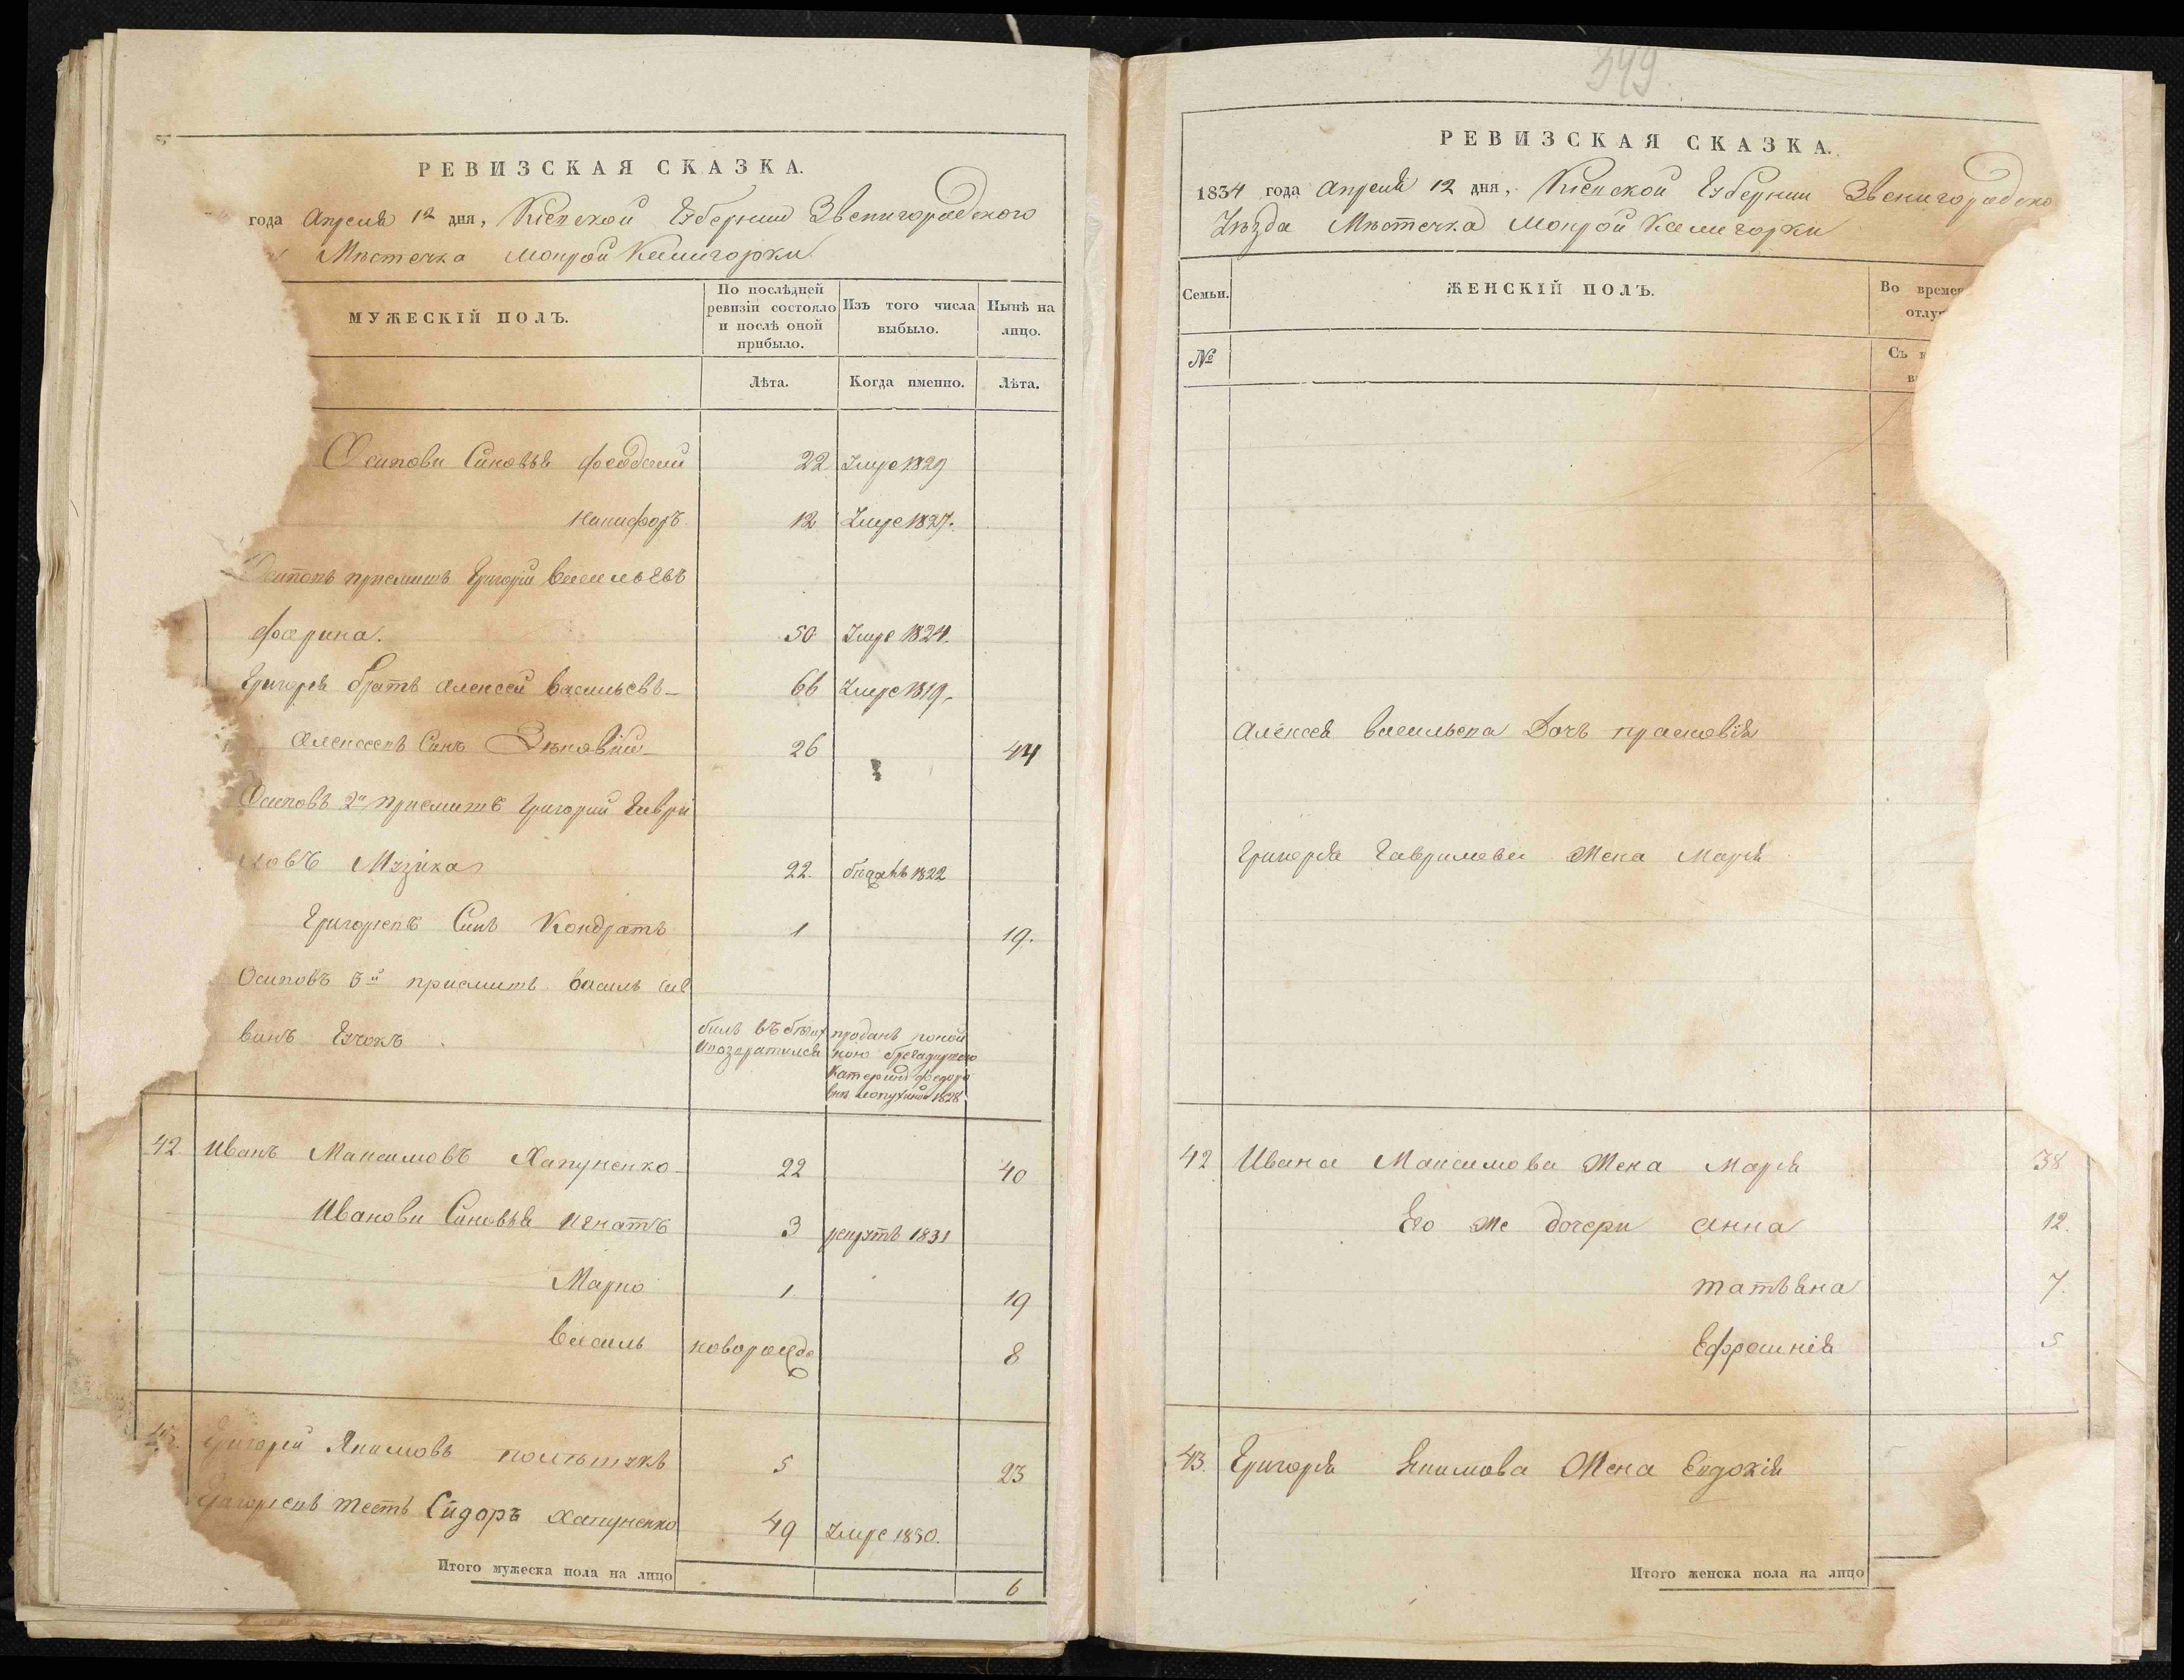 РЕВИЗСКАЯ СКАЗКА.
года Апреля 12 дня, Кіевской Губерніи Звенигородского
Мѣстечка Мокрой Калигорки
МУЖЕСКІЙ ПОЛЪ.
По послѣдней ревизіи состояло и послѣ оной прибыло.
Изъ того числа выбыло.
Нынѣ на лицо.
Лѣта.
Когда именно.
Лѣта.
Осипови Синовья Феодосій 22 Умре 1829
Никифоръ 12 Умре 1827.
приемишъ Григорій Васильевъ
Фарина. 50 Умре 1824.
Григорія братъ Алексей Васильевъ 66 Умре 1819.
Алексеевъ Синъ Зѣновій 26 44
Осиповъ 2й приемишъ Григорій Гаври
ловъ Музика 22. бѣжавъ 1822
Григориевъ Синъ Кондратъ 1 19.
Осиповъ 3й приемишъ Василь Сав
винъ
билъ въ бѣгах продань покой
и возвратился ною бригадиршою
Катериной Федоро
вною Лопухиной 1828
42 Иванъ Максимовъ Хапуненко 22 40
Иванови Синовья Игнатъ 3 рекрутъ 1831
Марко 1 19
Василь новорожде 8
43. Григорій Якимовъ 5 23
Григориевъ тесть Сидоръ Хапуненко 49 Умре 1830.
Итого мужеска пола на лицо 6
399.
РЕВИЗСКАЯ СКАЗКА.
1834 года Апреля 12 дня, Кіевской Губерніи Звенигородско
Уѣзда Мѣстечка Мокрой Калигорки
Семьи.
ЖЕНСКІЙ ПОЛЪ.
Во времен
отлу
№
Съ к
в
Алексея Васильева Дочь Прасковія
Григорія Гаврилова Жена Марія
42 Ивана Максимова Жена Марія 38
Его же дочери Анна 12.
Татьяна 7.
Ефросинія 5
43. Григорія Якимова Жена Евдокія
Итого женска пола на лицо